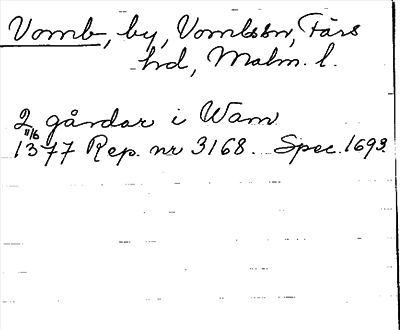 Vomb, by, Vombssn, Färs
hd, Malm. l.
2 gårdar i Wam
11/6
1377 Rep. nr 3168. Spec. 1693.